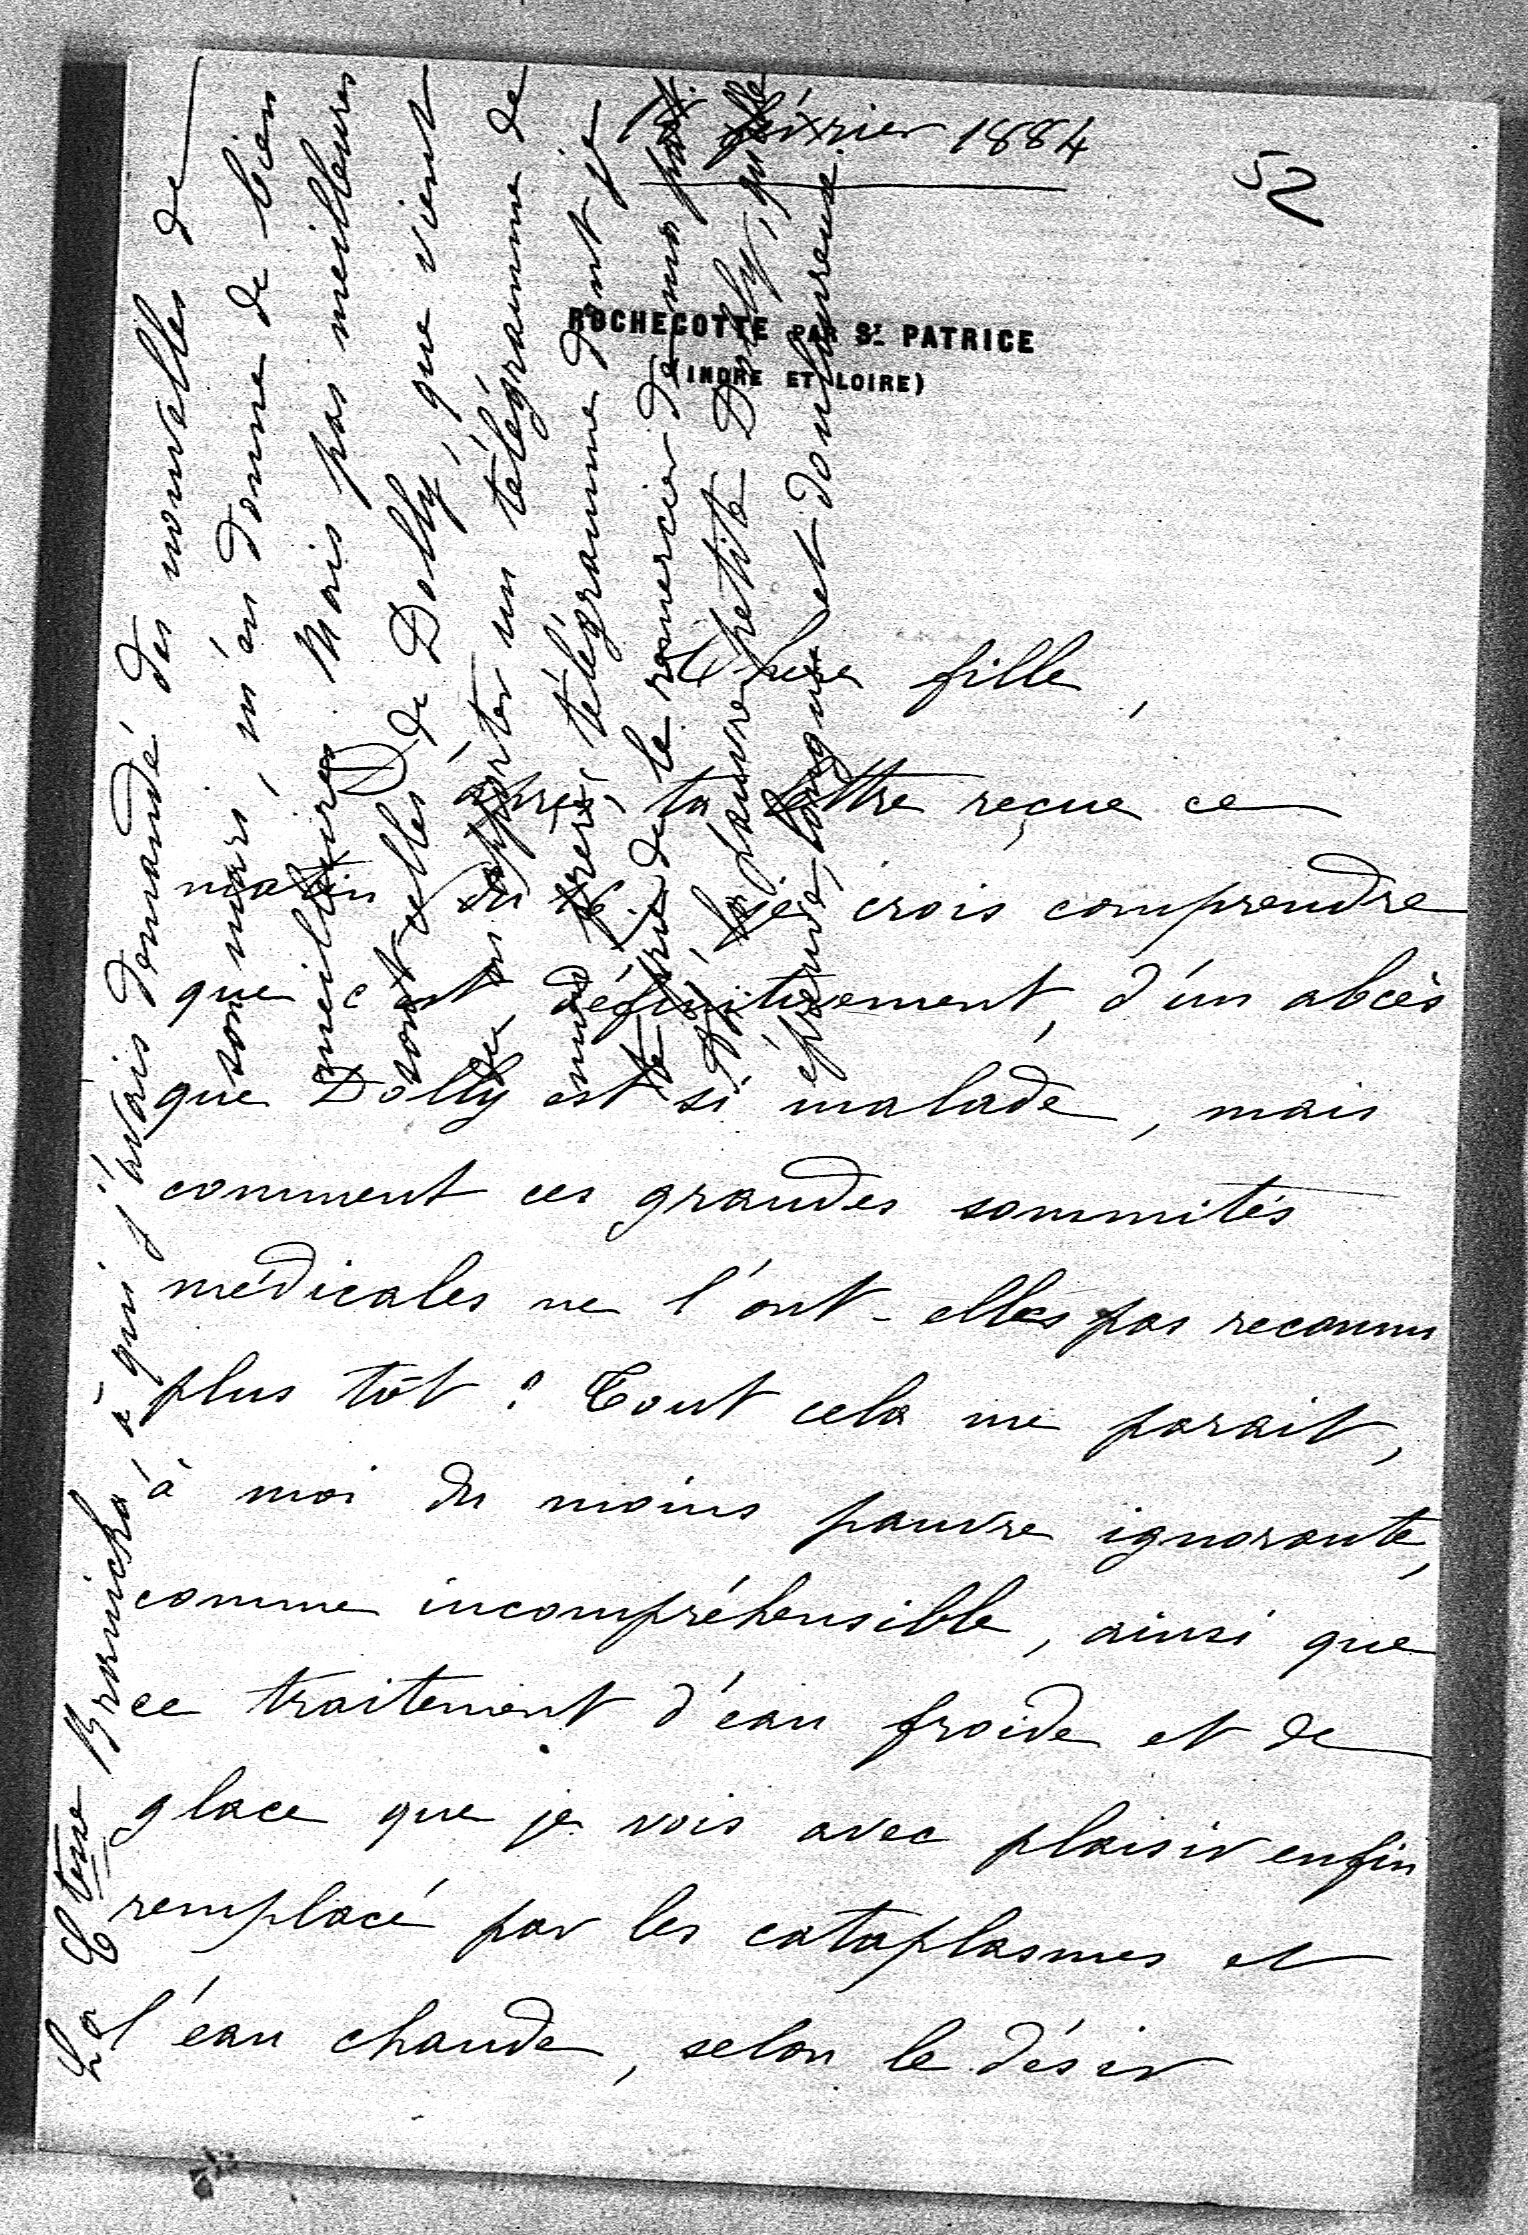 février 1884
52
ROCHECOTTE PAR ST PATRICE
(INDRE ET LOIRE)
Chère fille,
D'après ta lettre reçue ce
matin du 16, je crois comprendre
que c'est définitivement d'un abcès
que Dolly est si malade, mais
comment ces grandes sommités
médicales ne l'ont-elles pas reconnu
plus tôt? Tout cela me parait,
à moi du moins pauvre ignorante,
comme incompréhensible, ainsi que
ce traitement d'eau froide et de
glace que je vois avec plaisir enfin
remplacé par les cataplasmes et
l'eau chaude, selon le désir
La Ctesse Branicka à qui j'avais demandé des nouvelles de
son mari, m'en donne de bien
meilleures. Mais pas meilleures
sont celles de Dolly, que vient
de m'apporter un télégramme de
ton télégramme dont je
te prie de le remercier de ma part.
la pauvre petite Dolly, quelle
épreuve, longue et douloureuse.